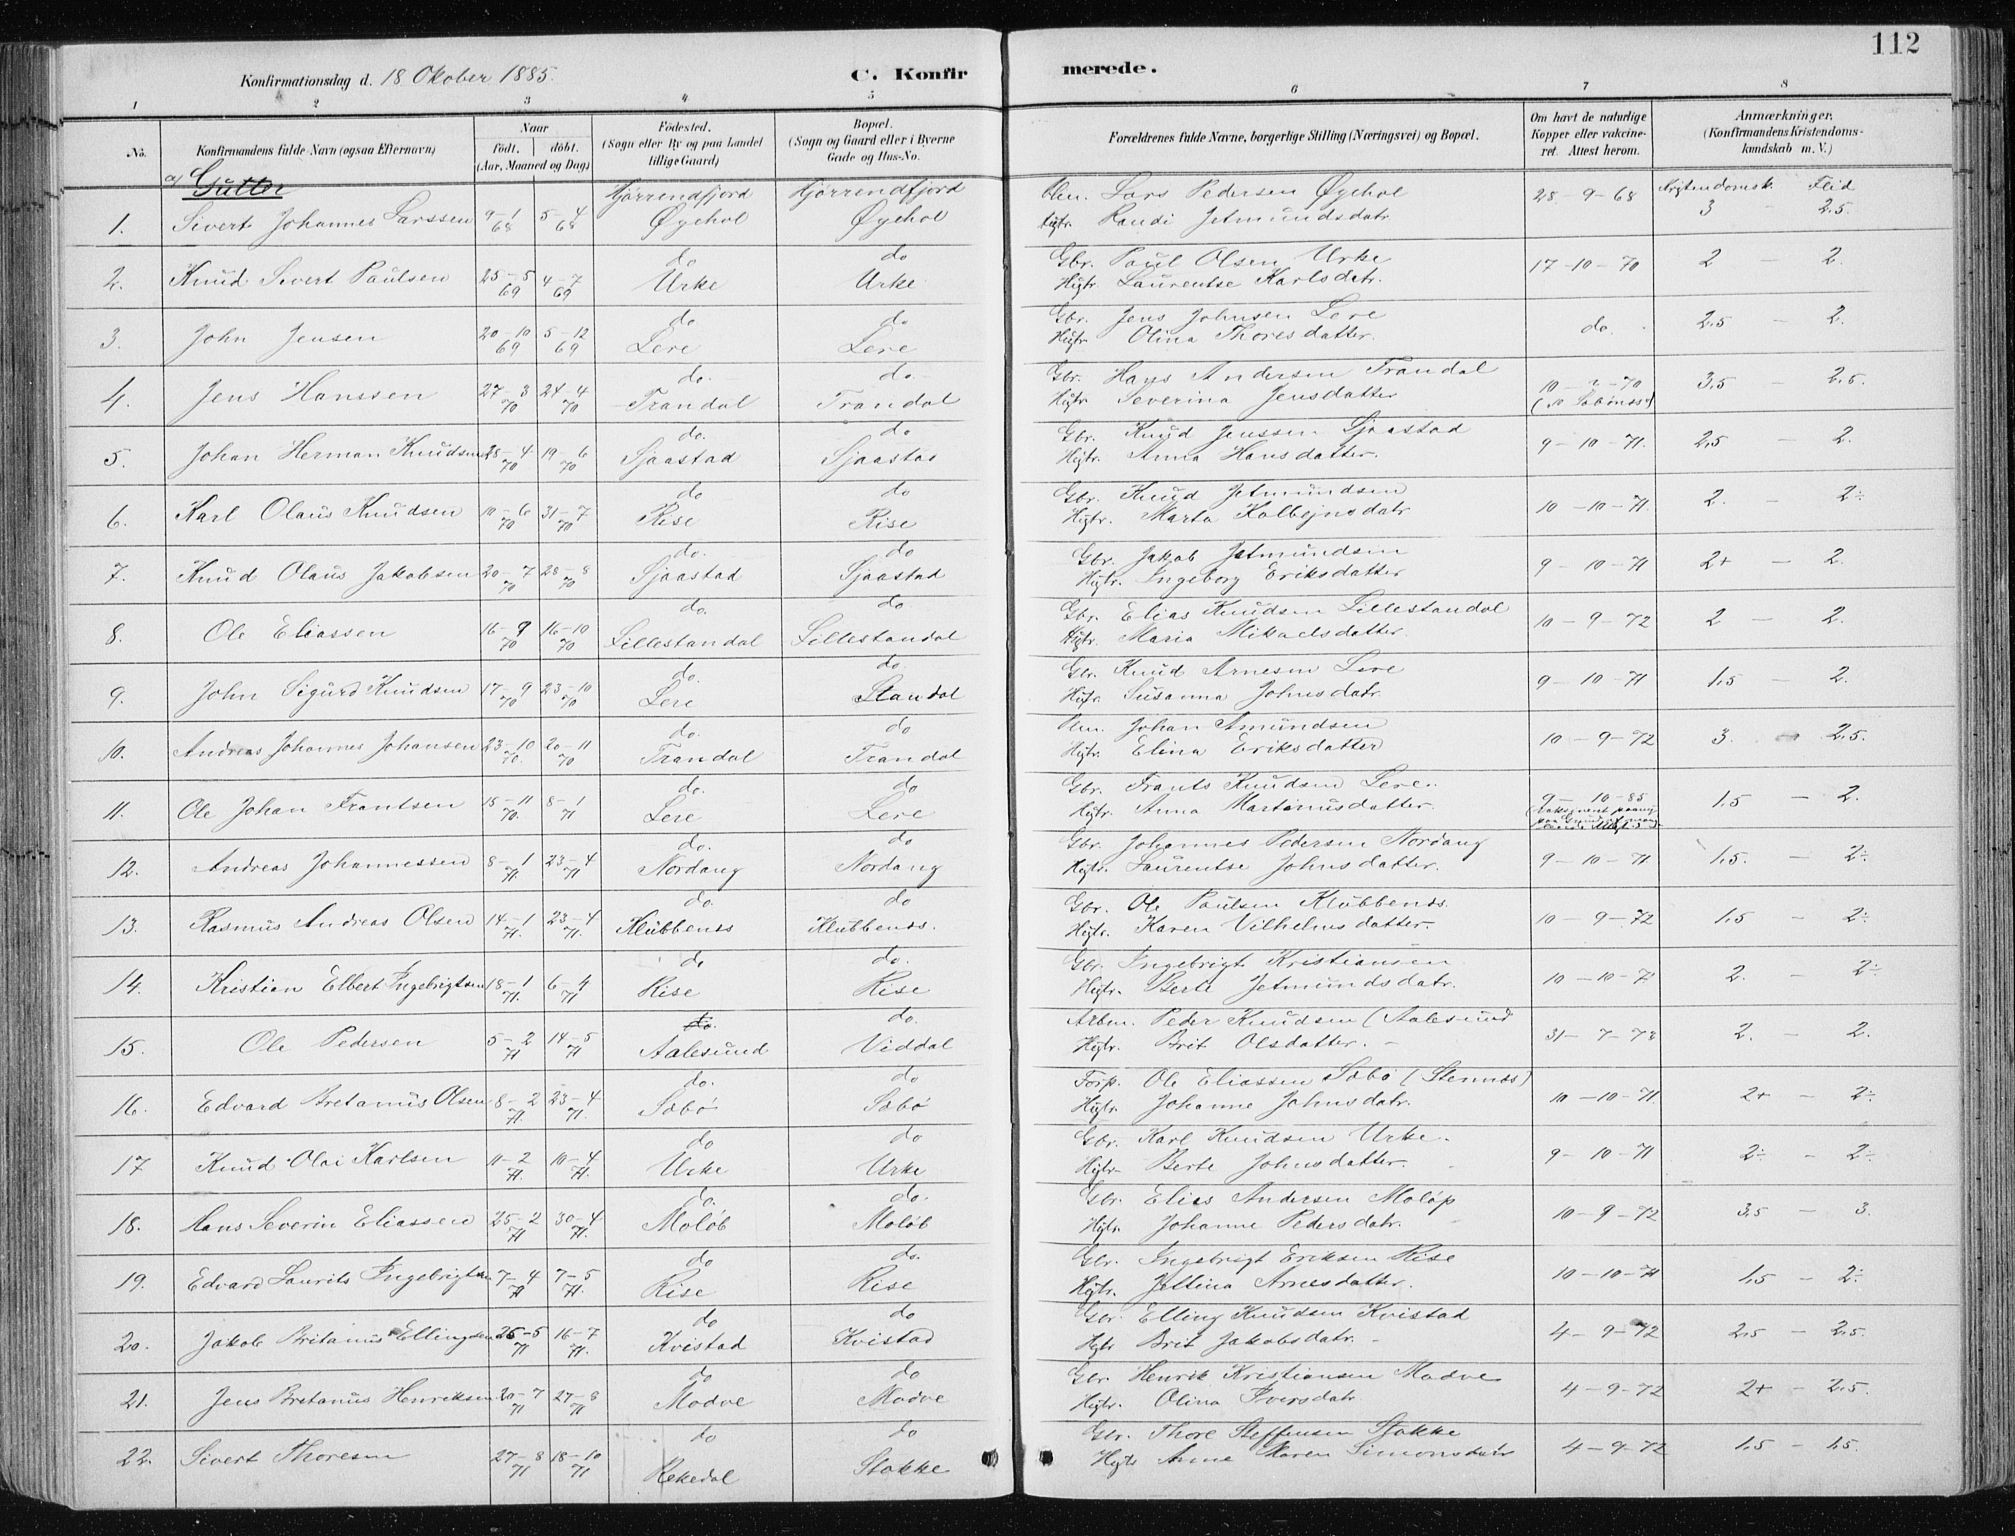 112
Konfirmationsdag d. 18 Oktober 1885.
C. Konfirmerede.
1 2 3 4 5 6 7 8
No. Konfirmandens fulde Navn (ogsaa Efternavn) Naar født. døbt. (Aar, Maaned og Dag) Fødested. (Sogn eller By og paa Landet tillige Gaard) Bopæl. (Sogn og Gaard eller i Byerne Gade og Hus-No. Forældrenes fulde Navne, borgerlige Stilling (Næringsvei) og Bopæl. Om havt de naturlige Kopper eller vakcineret. Attest herom. Anmærkninger, (Konfirmandens Kristendomskundskab m. V.)
a) Gutter Hjørrendfjord Hjørrendfjord Kristendomsk. Flid
1. Sivert Johannes Larssen 9-1 68 5-4 68 Øyehol Øyehol Lars Pedersen Øyehol Hstr. Randi Jetmundsdatr. 28-9-68 3 - 2.5.
2. Knud Sivert Paulsen 25-5 69 4-7 69 do Urke do Urke Gbr. Paul Olsen Urke Hstr. Laurentse Karlsdatr. 17-10-70 2 - 2.
3. John Jensen 20-10 69 5-12 69 do Lere do Lere Gbr. Jens Johnsen Lere Hstr. Olina Thoresdatter. do. 2.5 - 2.
4. Jens Hanssen 27-3 70 24-4 70 do. Trandal do. Trandal Gbr. Hans Andersen Trandal Hstr. Severina Jensdatter 3.5 - 2.5.
5. Johan Herman Knudsen 28-4 70 19-6 70 do. Sjaastad do Sjaastad Gbr. Knud Jenssen Sjaastad Hstr. Anna Hansdatter. 9-10-71. 2.5 - 2.
6. Karl Olaus Knudsen 10-6 70 31-7 70 do Rise do Rise Gbr. Knud Jetmundsen Hstr. Marta Kolbejnsdatr 10-10-71. 2. - 2÷
7. Knud Olaus Jakobsen 20-7 70 28-8 70 do. Sjaastad do Sjaastad Gbr. Jakob Jetmundsen Hstr. Ingeborg Eriksdatter 9-10-71 2+ - 2.
8. Ole Eliassen 16-9 70 16-10 70 do. Lillestandal do Lillestandal Gbr. Elias Knudsen Lillestandal Hstr. Maria Mikaelsdatter. 10-9-72 2 - 2.
9. John Sigurd Knudsen 17-9 70 23-10 70 do. Lere do. Standal Gbr. Knud Arnesen Lere Hstr. Susanna Johnsdatr. 9-10-71 1.5 - 2.
10. Andreas Johannes Johansen 23-10 70. 20-11 70 do. Trandal do Trandal Johan Amundsen Hstr. Elina Eriksdatter 10-9-72 3. - 2.5.
11. Ole Johan Frantsen 18-11 70. 8-1 71 do. Lere do Lere Gbr. Frants Knudsen Lere. Hstr. Anna Martinusdatter. 9-10-85 1.5 - 2.
12. Andreas Johannessen 8-1 71. 23-4 71 do. Nordang do Nordang Gbr. Johannes Pedersen Nordang Hstr. Laurentse Johnsdatter. 9-10-71 1.5. - 2÷
13. Rasmus Andreas Olsen 14-1 71. 23-4 71. do. Klubbenes do Klubbenes. Gbr. Ole Paulsen Klubbenes. Hstr. Karen Vilhelmsdatter. 10-9-72 1.5 - 2÷
14. Kristian Elbert Ingebrigtsen 18-1 71. 6-4 71 do Rise do. Rise Gbr. Ingebrigt Kristiansen Hstr. Berte Jetmundsdatr. 10-10-71 2. - 2÷
15. Ole Pedersen 5-2 71 14-5 71 do. Aalesund do. Viddal Arbm. Peder Knudsen (Aalesund Hstr. Brit Olsdatter. 31-7-73 2. - 2.
16. Edvard Bretanus Olsen 8-2 71. 23-4 71. do. Sæbø do Sæbø Forp. Ole Eliassen Sæbø (Stennæs) Hstr. Johanne Johnsdatr. 10-10-71. 2+ - 2÷
17 Knud Olai Karlsen 11-2 71. 10-4 71. do Urke do Urke Gbr. Karl Knudsen Urke. Hstr. Berte Johnsdatter. 9-10-71 2÷ - 2÷
18. Hans Severin Eliassen 25-2 71 30-4 71. do. Moløb do. Moløb Gbr. Elias Andersen Moløp Hstr. Johanne Pedersdatr. 10-9-72 3.5 - 3.
19. Edvard Laurits Ingebrigtsen 7-4 71 7-5 71. do Rise do. Rise Gbr. Ingebrigt Eriksen Rise Hstr. Jettina Arnesdatter. 10-10-71 1.5 - 2÷
20. Jakob Britanus Ellingsen 25-5 71 16-7 71. do Kvistad do Kvistad Gbr. Elling Knudsen Kvistad Hstr Brit Jakobsdatr. 4-9-72 2.5 - 2.5.
21. Jens Bretanus Henriksen 20-7 71 27-8 71 do Modve do Modve Gbr. Henrik Kristiansen Modve Hstr. Olina Iversdatr 4-9-72 2+ - 2.5.
22. Sivert Thoresen 27-8 71 18-10 71 do Rekedal do Stokke Gbr. Thore Steffensen Stokke Hstr Anne Maren Simonsdatr 4-9-72 1.5 - 1.5.